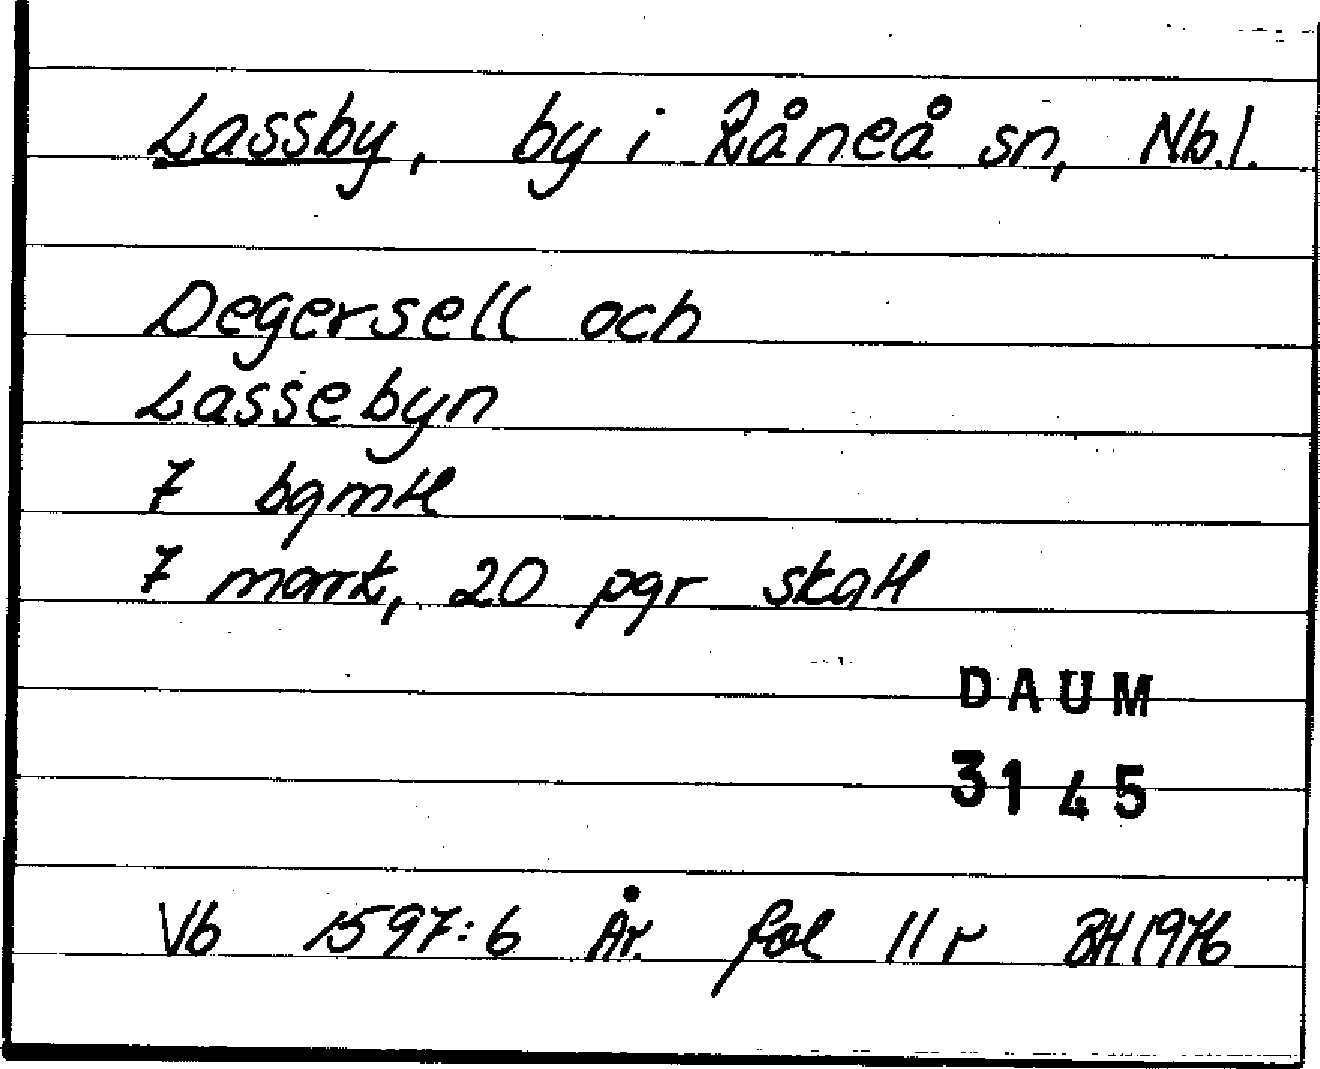 Lassby, by i Råneå sn, Nb.l.
Degersell och
Lassebyn
7 bgmtl
7 mark, 20 pgr skatt
DAUM
3145
Vb 1597:6 År. fol 11 r BH 1976